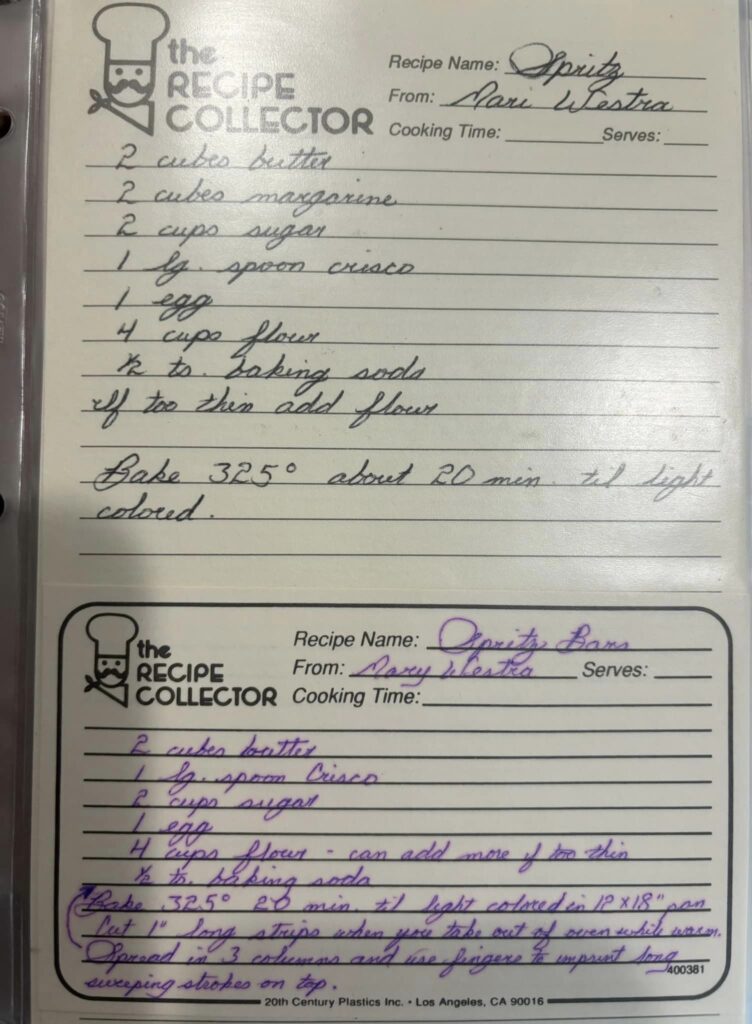 the
RECIPE
COLLECTOR
Recipe Name: Spritz
From: Mari Westra
Cooking Time: Serves:
2 cubes butter
2 cubes margarine
2 cups sugar
1 lg. spoon crisco
1 egg
4 cups flour
1/2 ts. baking soda
If too thin add flour
Bake 325° about 20 min. til light
colored.
the
RECIPE
COLLECTOR
Recipe Name: Spritz Bars
From: Mary Westra Serves:
Cooking Time:
2 cubes butter
1 lg. spoon Crisco
2 cups sugar
1 egg
4 cups flour - can add more if too thin
1/2 ts. baking soda
Bake 325° 20 min. til light colored in 12 x 18" pan
Cut 1" long strips when you take out of oven while warm.
Spread in 3 columns and use fingers to imprint long
sweeping strokes on top.
400381
20th Century Plastics Inc. • Los Angeles, CA 90016